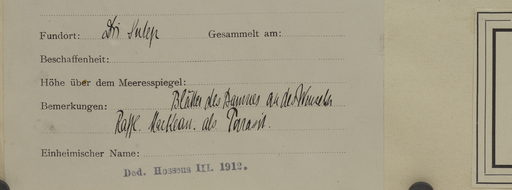 Fundort: Doi Sutep Gesammelt am:
Beschaffenheit:
Höhe über dem Meeresspiegel:
Bemerkungen: Blätter des Baumes an des Wurzeln
Raffl. als Parasit.
Einheimischer Name:
Ded. Hosseus III. 1912.